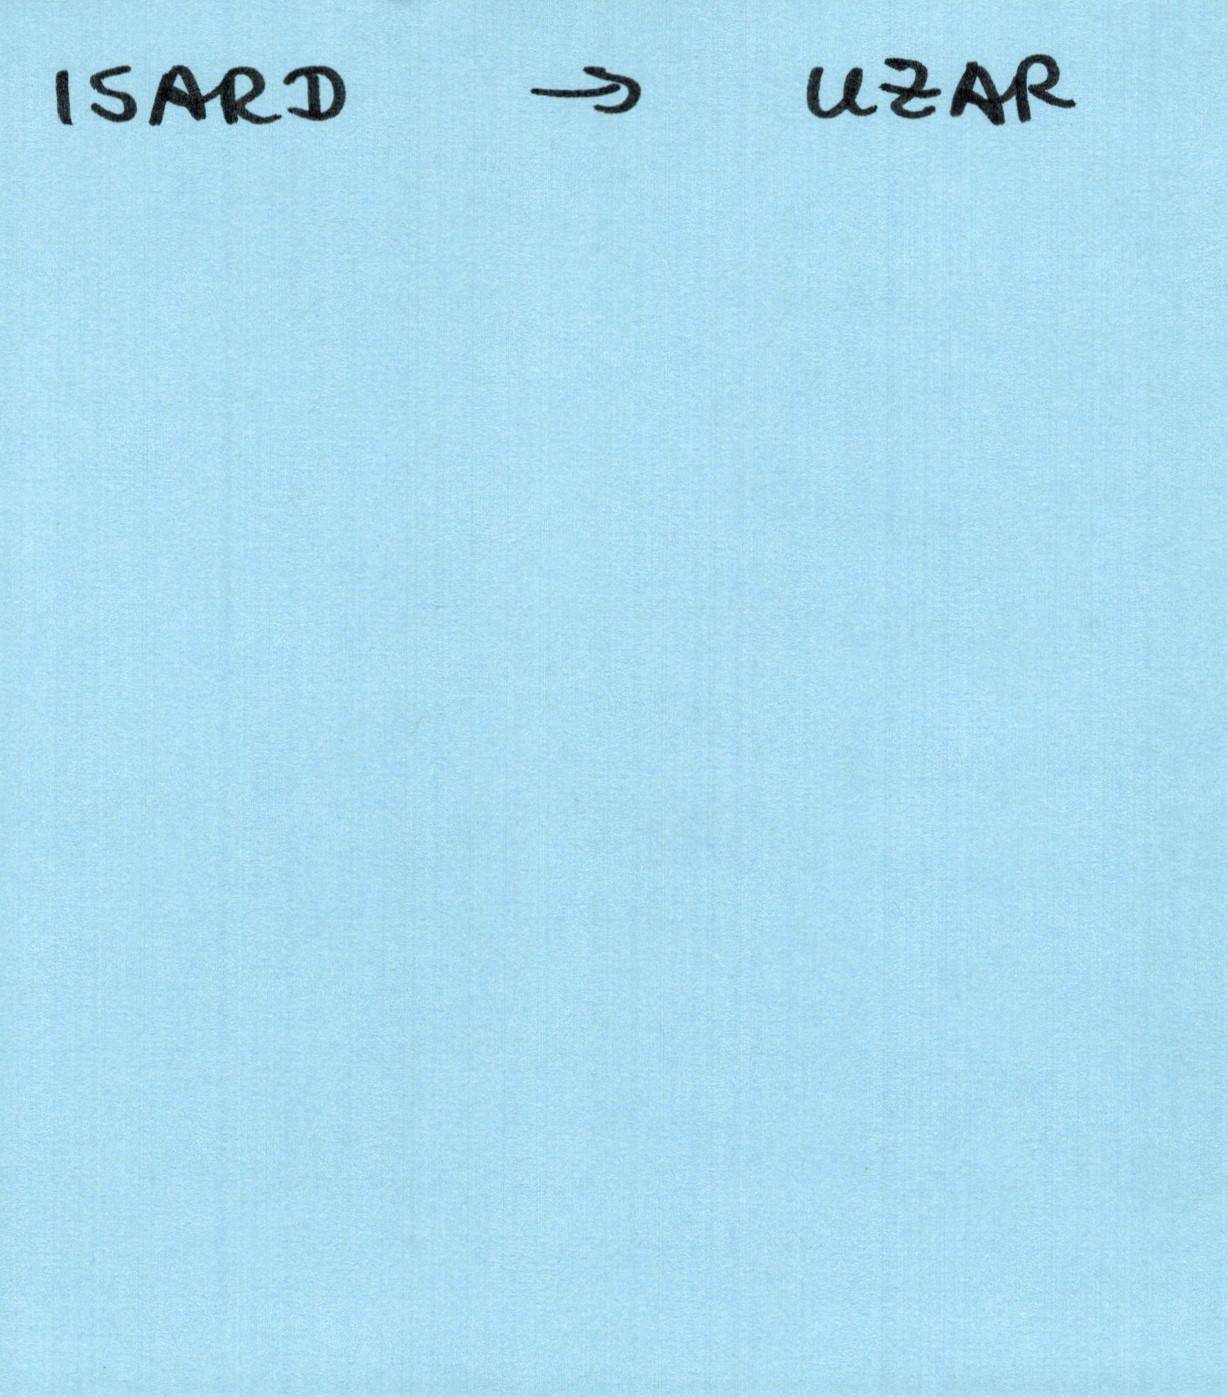 ISARD → UZAR